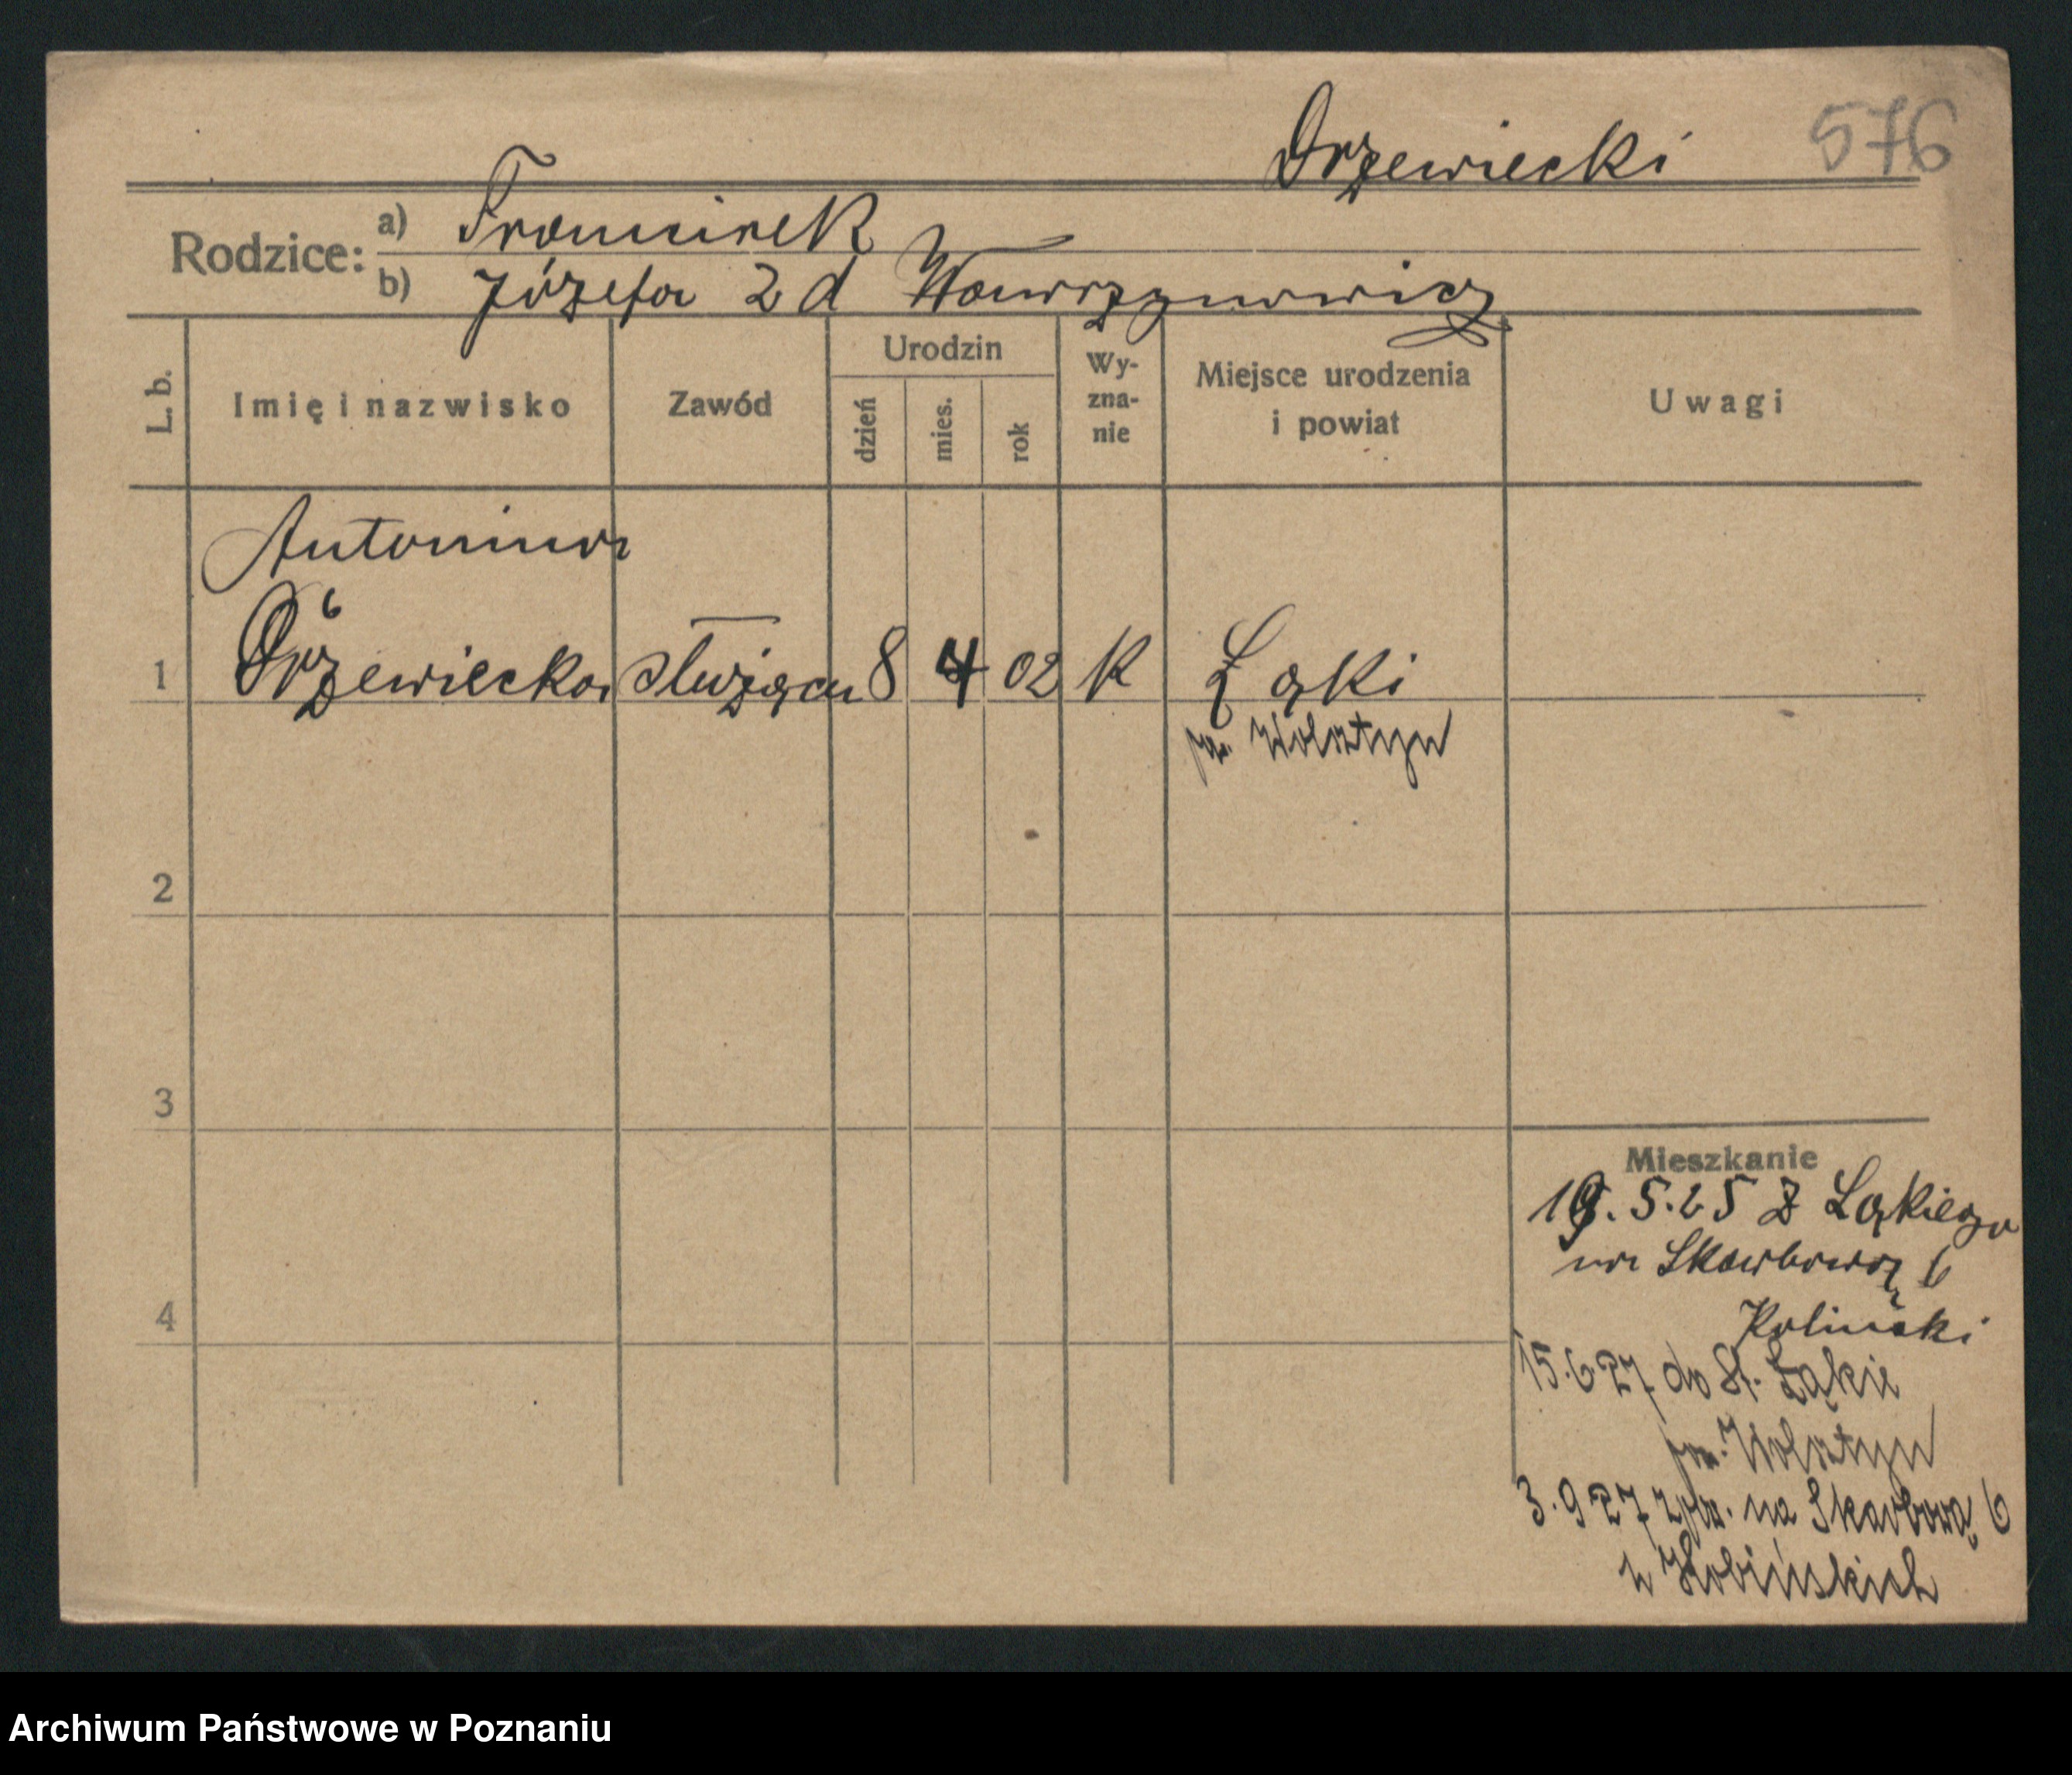 Drzewiecki 576
Rodzice: a) Franciszek
b) Józefa z d Wawrzynowicz
L. b. Imię i nazwisko Zawód Urodzin dzień mies. rok Wy-zna-nie Miejsce urodzenia i powiat Uwagi
Antonina
1 Drzewiecka służąca 8 4 02 K Łąki
pw. Wolsztyn
2
3
Mieszkanie
19.5.25 z Łąkiego
na Skarbową 6
4
15.6 27 do St. Łąkie
pw. Wolsztyn
3.9 27 na Skarbową 6
Archiwum Państwowe w Poznaniu